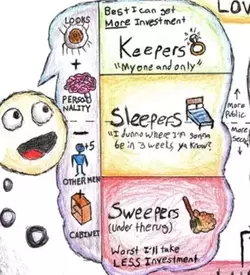 LOOKS
+
PERSO
NALITY
-
+5
OTHER MEN
+
CABINET
Best I can get
More Investment
Keepers
"My one and only"
Sleepers
"I dunno where I'm gonna
be in 3 weeks, ya know?"
Sweepers
(under the rug)
Worst I'll take
LESS Investment
LOV
More
Public
More